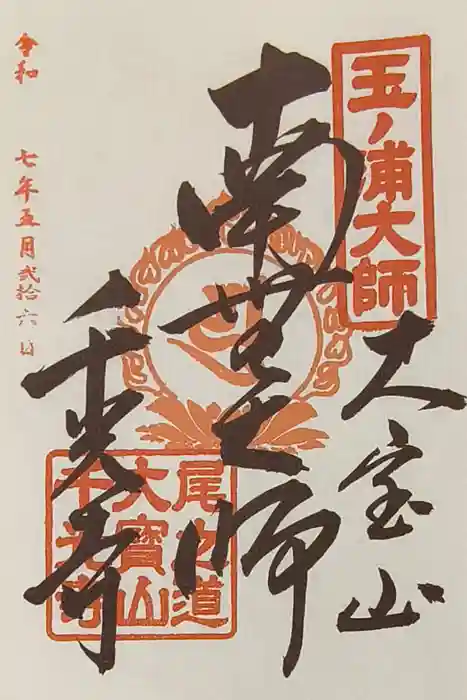 玉ノ浦大師
大宝山
南無大師
千光寺
尾之道
大寶山
千光寺
令和 七年五月弐拾六日